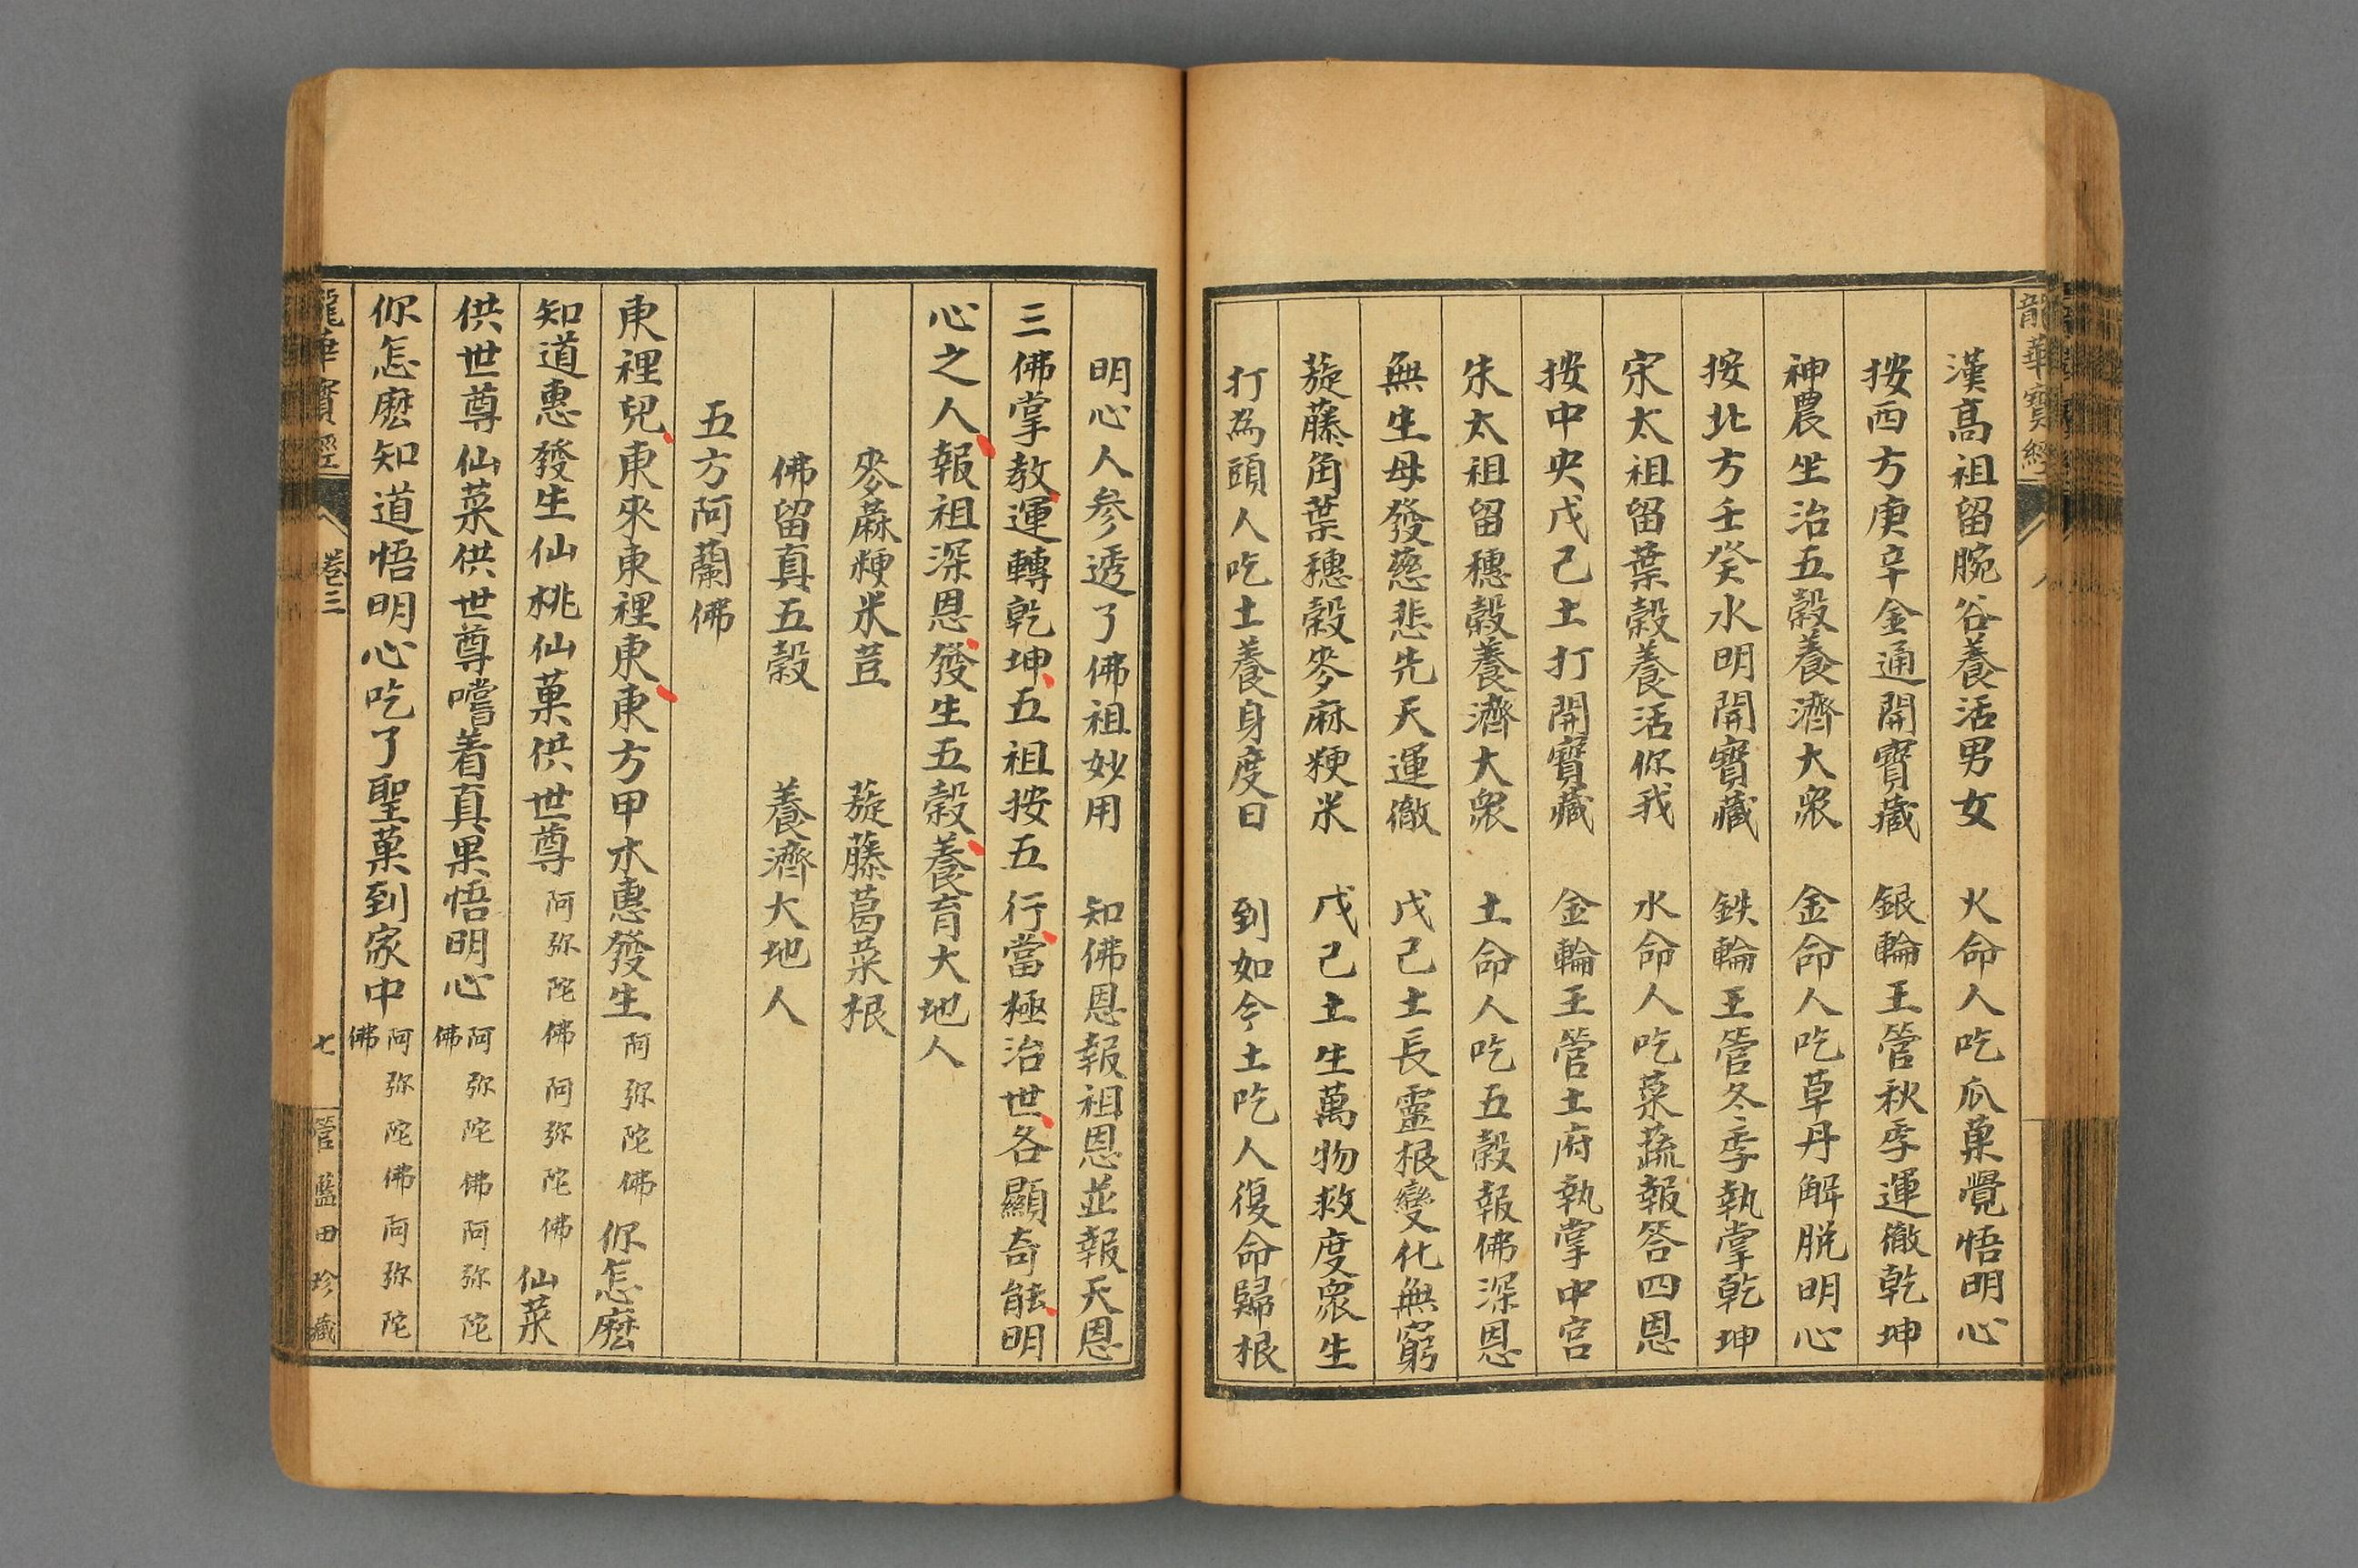 龍華寶經
漢高祖留腕谷養活男女 火命人吃瓜菓覺悟明心
按西方庚辛金通開寶藏 銀輪王管秋季運徹乾坤
神農坐治五穀養濟大衆 金命人吃草丹解脱明心
按北方壬癸水明開寶藏 鉄輪王管冬季執掌乾坤
宋太祖留葉穀養活你我 水命人吃菜蔬報答四恩
按中央戊己土打開寶藏 金輪王管土府執掌中宮
朱太祖留穗穀養濟大衆 土命人吃五穀報佛深恩
無生母發慈悲先天運徹 戊己土長靈根變化無窮
蔙藤角葉穗穀麥麻粳米 戊己土生萬物救度衆生
打為頭人吃土養身度日 到如今土吃人復命歸根
明心人参透了佛祖妙用 知佛恩報祖恩並報天恩
三佛掌教運轉乾坤五祖按五行當極治世各顯奇能明
心之人報祖深恩發生五穀養育大地人
麥蔴粳米荳 蔙藤葛菜根
佛留真五穀 養濟大地人
五方阿蘭佛
東裡兒東來東裡東東方甲木惠發生阿弥陀佛你怎麽
知道惠發生仙桃仙菓供世尊阿弥陀佛阿弥陀佛仙菜
供世尊仙菜供世尊嚐着真果悟明心阿弥陀佛阿弥陀佛
你怎麽知道悟明心吃了聖菓到家中阿弥陀佛阿弥陀佛
龍華寶經 卷三 七 管藍田珍藏